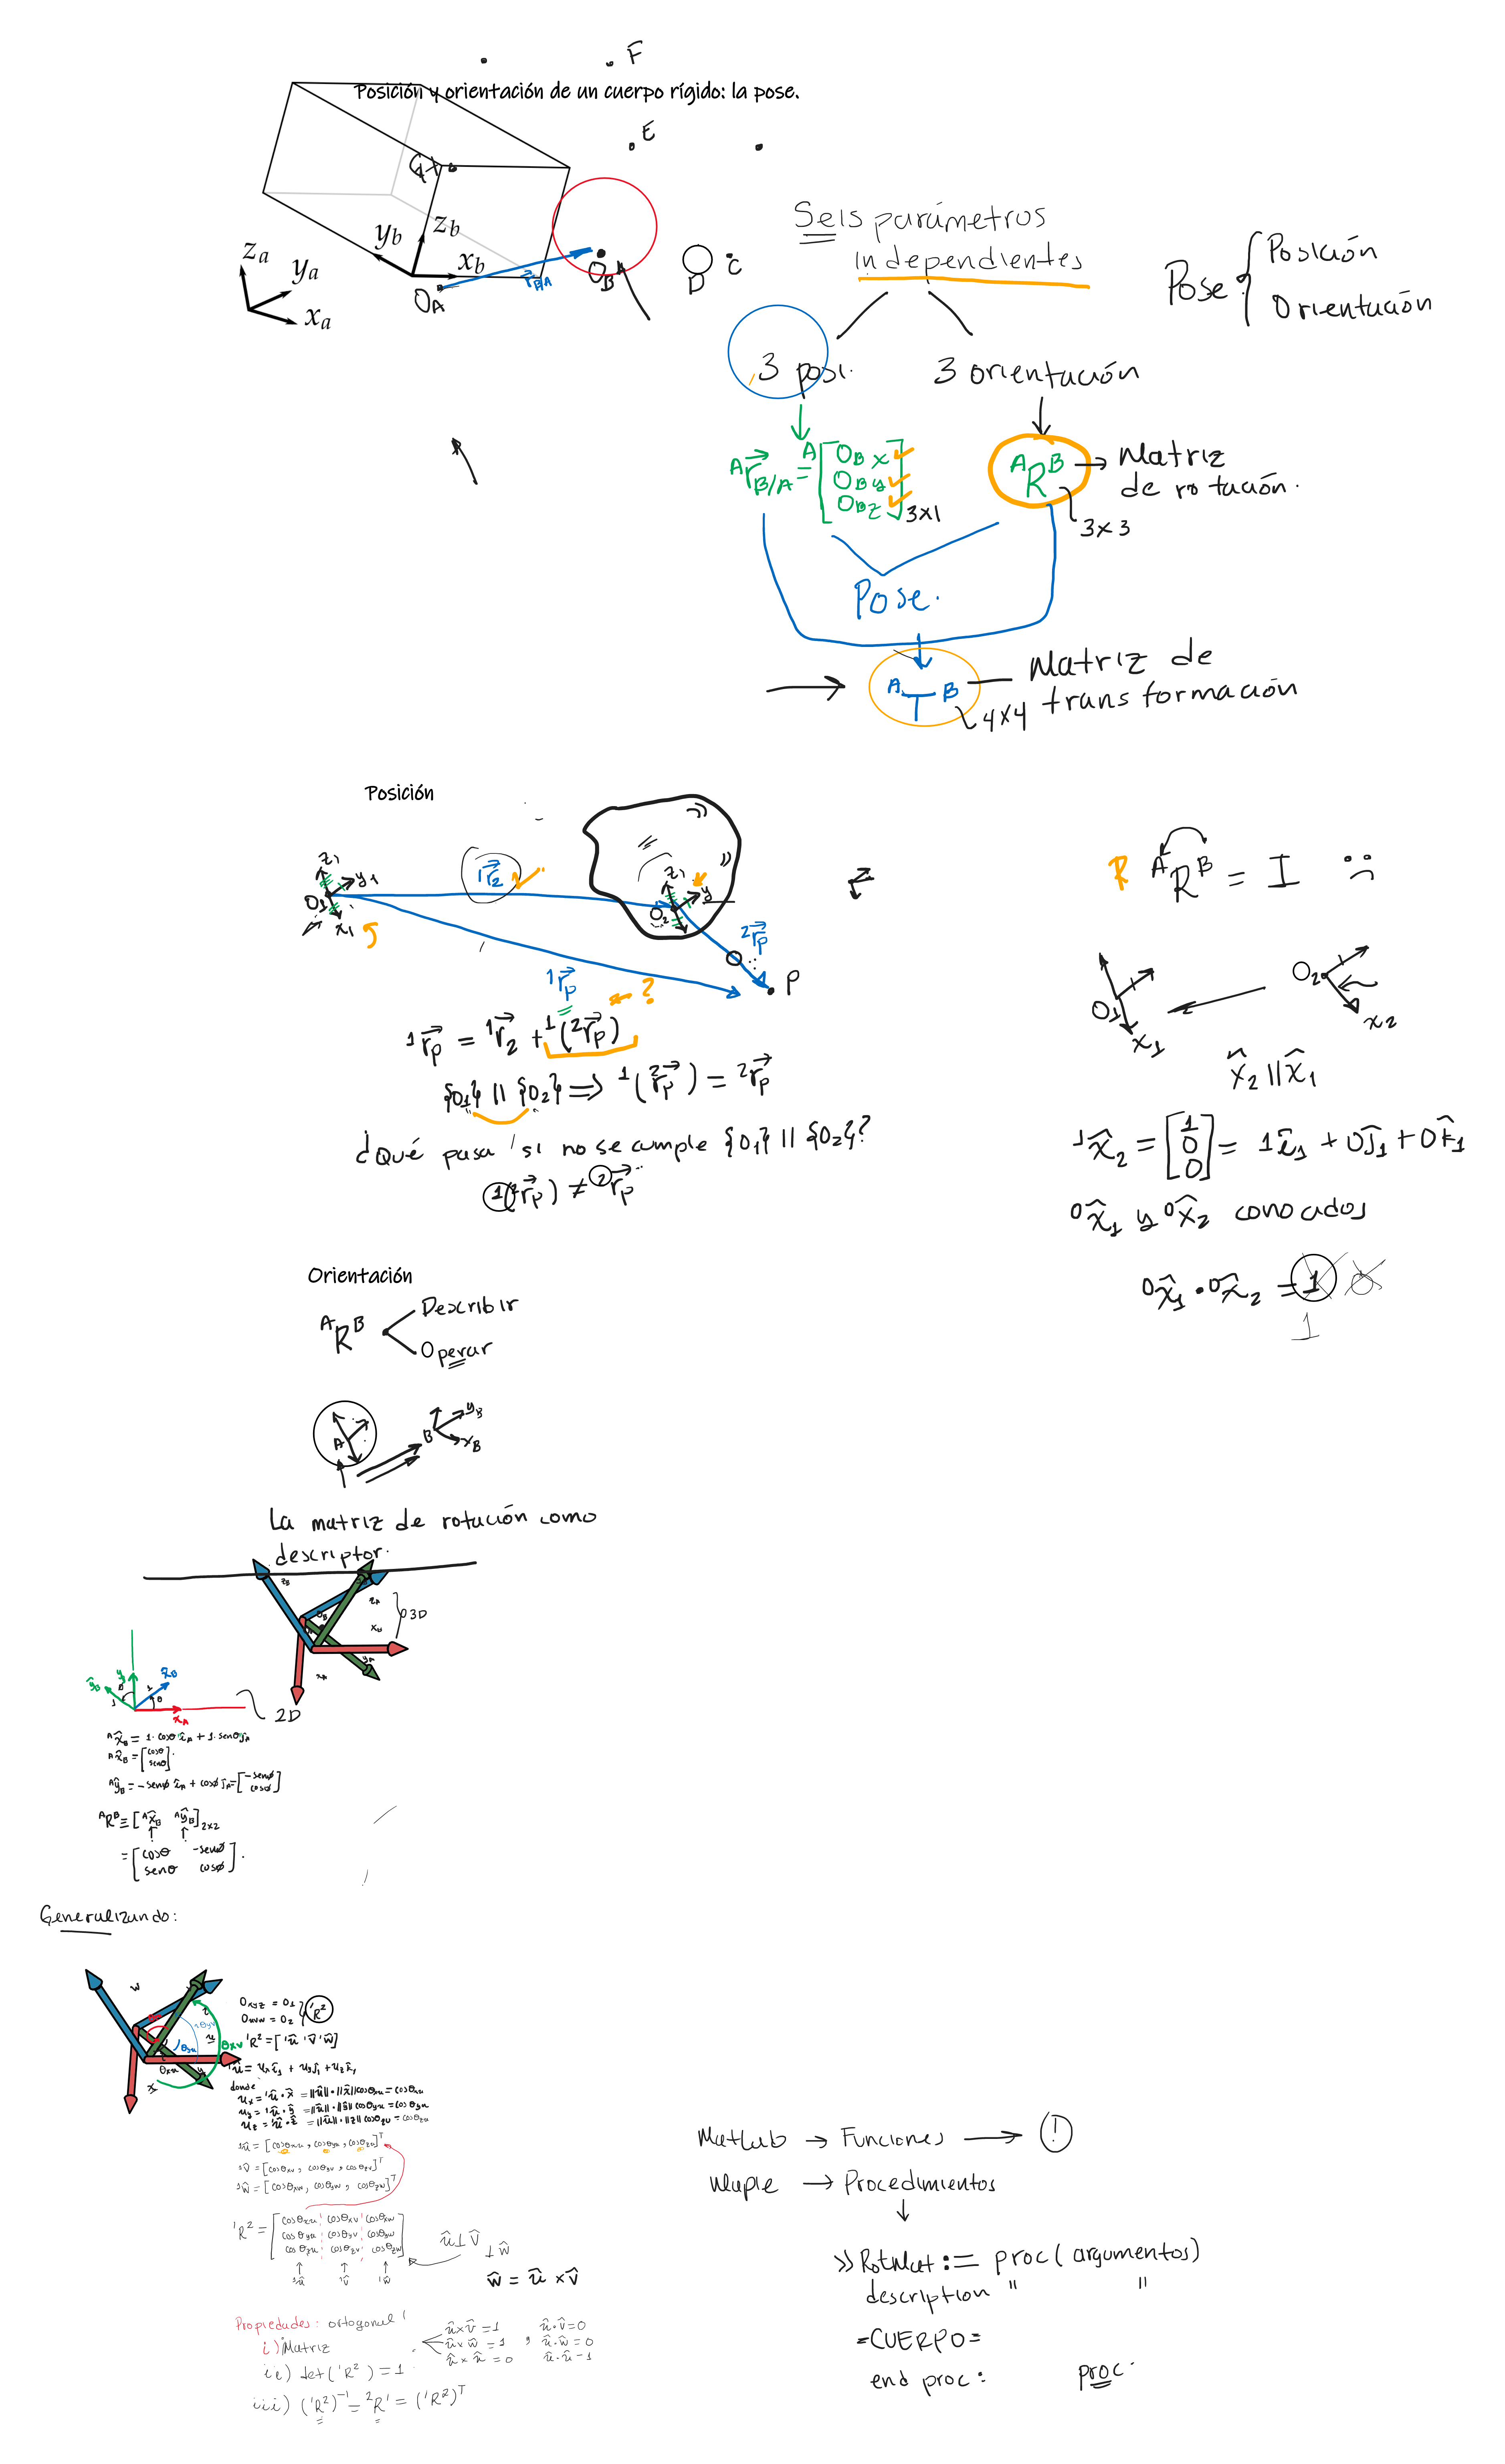 F
Posición y orientación de un cuerpo rígido: la pose.
E
G
z_b
y_b
x_b
z_a
y_a
x_a
O_A
r_B/A
O_B
A
D
C
Seis parámetros
independientes
Pose: { Posición
Orientación
3 posi.
3 orientación
^A r_B/A = ^A [ O_Bx
O_By
O_Bz ] 3x1
^A R^B → Matriz
de rotación.
3x3
Pose.
^A T^B — Matriz de
transformación
4x4
Posición
z_1
y_1
O_1
x_1
^1 r_2
z_1
y
O_2
^2 r_p
P
^1 r_p ← ?
^1 r_p = ^1 r_2 + ^1(^2 r_p)
{O_1} || {O_2} ⟹ ^1(^2 r_p) = ^2 r_p
¿Qué pasa si no se cumple {O_1} || {O_2}?
^1(^2 r_p) ≠ ^2 r_p
R ^A R^B = I
O_1
x_1
O_2
x_2
x̂_2 || x̂_1
^1 x̂_2 = [1 0 0] = 1î_1 + 0ĵ_1 + 0k̂_1
^0 x̂_1 y ^0 x̂_2 conocados
^0 x̂_1 · ^0 x̂_2 = 1
1
Orientación
^A R^B
Describir
Operar
A
B
y_B
x_B
La matriz de rotación como
descriptor.
3D
ŷ_B
y
x̂_B
θ
x_A
2D
^A x̂_B = 1·cosθ î_A + 1·senθ ĵ_A
^A x̂_B = [cosθ senθ]
^A ŷ_B = -senø î_A + cosø ĵ_A = [-senø cosø]
^A R^B ≡ [^A x̂_B ^A ŷ_B] 2x2
= [cosθ -senø
senθ cosø].
Generalizando:
w
θ_xv
θ_yu
θ_xu
x
O_xyz = O_1
O_uvw = O_2 } ^1 R^2
^1 R^2 = [^1 û ^1 v̂ ^1 ŵ]
^1 û = u_x î_1 + u_y ĵ_1 + u_z k̂_1
donde
u_x = ^1 û · x̂ = ||û|| · ||x̂|| cosθ_xu = cosθ_xu
u_y = ^1 û · ŷ = ||û|| · ||ŷ|| cosθ_yu = cosθ_yu
u_z = ^1 û · ẑ = ||û|| · ||z|| cosθ_zu = cosθ_zu
^1 û = [cosθ_xu, cosθ_yu, cosθ_zu]^T
^1 v̂ = [cosθ_xv, cosθ_yv, cosθ_zv]^T
^1 ŵ = [cosθ_xw, cosθ_yw, cosθ_zw]^T
^1 R^2 = [cosθ_xu cosθ_xv cosθ_xw
cosθ_yu cosθ_yv cosθ_yw
cosθ_zu cosθ_zv cosθ_zw]
^1 û ^1 v̂ ^1 ŵ
û ⊥ v̂ ⊥ ŵ
ŵ = û × v̂
Propiedades: ortogonal
i) Matriz
û×v̂ = 1
û×ŵ = 1
û×û = 0
û·v̂ = 0
û·ŵ = 0
û·û = 1
ii) det(^1 R^2) = 1
iii) (^1 R^2)^-1 = ^2 R^1 = (^1 R^2)^T
Matlab → Funciones → !
Maple → Procedimientos
>> RotMat := proc( argumentos)
description " "
=CUERPO=
end proc:
proc.